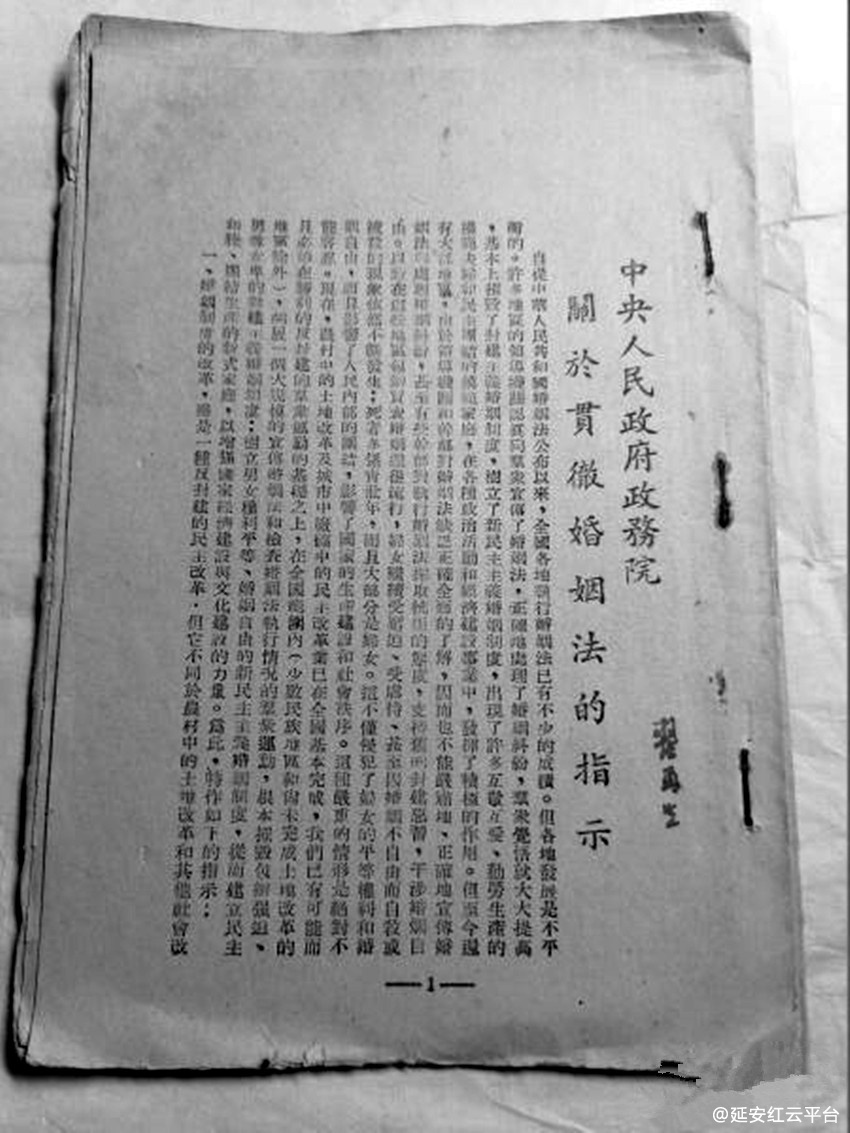 中央人民政府政務院
關於貫徹婚姻法的指示
自從中華人民共和國婚姻法公布以來,全國各地執行婚姻法已有不少的成績。但各地發展是不平
衡的。許多地區的領導機關認真向羣衆宣傳了婚姻法,正確地處理了婚姻糾紛,羣衆覺悟就大大提高
,基本上摧毀了封建主義婚姻制度,樹立了新民主主義婚姻制度,出現了許多互敬互愛、勤勞生產的
模範夫婦和民主團結的模範家庭,在各種政治活動和經濟建設事業中,發揮了積極的作用。但至今還
有大部地區,由於領導機關和幹部對婚姻法缺乏正確全面的了解,因而也不能嚴肅地、正確地宣傳婚
姻法與處理婚姻糾紛,甚至有些幹部對執行婚姻法採取抗拒的態度,支持舊的封建惡習,干涉婚姻自
由。以致在這些地區包辦買賣婚姻還很流行,婦女繼續受壓迫、受虐待、甚至因婚姻不自由而自殺或
被殺的現象依然不斷發生;死者多係青壯年,而且大部分是婦女。這不僅侵犯了婦女的平等權利和婚
姻自由,而且影響了人民內部的團結,影響了國家的生產建設和社會秩序。這種嚴重的情形是絕對不
能容許。現在,農村中的土地改革及城市中廠礦中的民主改革業已在全國基本完成,我們已有可能而
且必須在勝利的反封建的羣衆運動的基礎之上,在全國範圍內(少數民族地區和尚未完成土地改革的
地區除外),開展一個大規模的宣傳婚姻法和檢查婚姻法執行情況的羣衆運動,根本摧毀包辦強迫、
男尊女卑的封建主義婚姻制度;樹立男女權利平等、婚姻自由的新民主主義婚姻制度,從而建立民主
和睦、團結生產的新式家庭,以增强國家經濟建設與文化建設的力量。爲此,特作如下的指示:
一、婚姻制度的改革,雖是一種反封建的民主改革,但它不同於農村中的土地改革和其他社會改
—1—
@延安红云平台